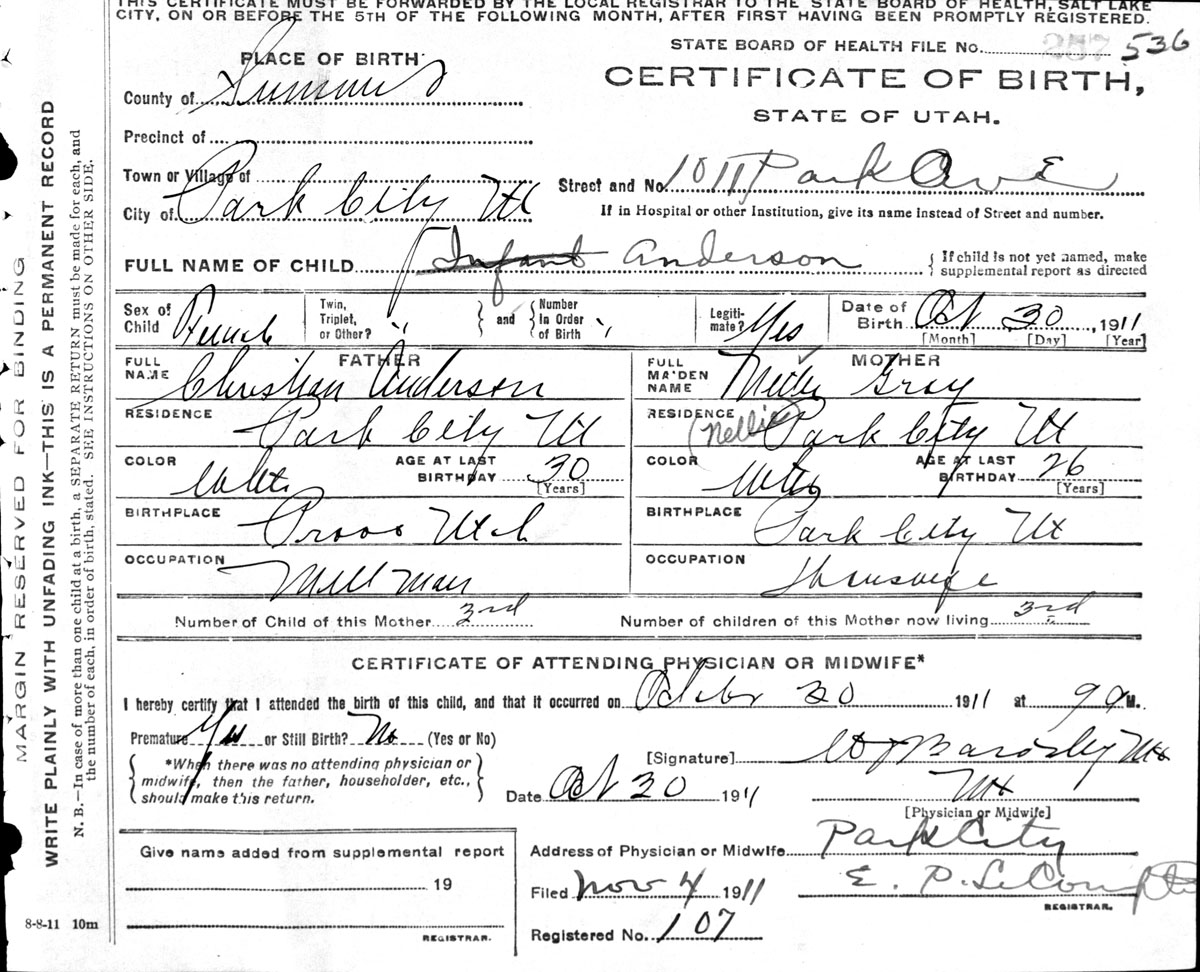 THIS CERTIFICATE MUST BE FORWARDED BY THE LOCAL REGISTRAR TO THE STATE BOARD OF HEALTH, SALT LAKE
CITY, ON OR BEFORE THE 5TH OF THE FOLLOWING MONTH, AFTER FIRST HAVING BEEN PROMPTLY REGISTERED.
STATE BOARD OF HEALTH FILE NO. 536
PLACE OF BIRTH
CERTIFICATE OF BIRTH,
STATE OF UTAH.
County of Summit
Precinct of
Town or Village of
Street and No. 1011 Park Ave
City of Park City Ut
If in Hospital or other Institution, give its name instead of Street and number.
FULL NAME OF CHILD Infant Anderson { If child is not yet named, make supplemental report as directed
Sex of Child Female
Twin, Triplet, or Other? " } and { Number In Order of Birth "
Legitimate? Yes
Date of Birth Oct 30, 1911
[Month] [Day] [Year]
FATHER
FULL NAME Christian Anderson
MOTHER
FULL MAIDEN NAME Gray
(Nellie)
RESIDENCE Park City Ut
RESIDENCE Park City Ut
COLOR White AGE AT LAST BIRTHDAY 30 [Years]
COLOR White AGE AT LAST BIRTHDAY 26 [Years]
BIRTHPLACE Provo Utah
BIRTHPLACE Park City Ut
OCCUPATION Mill man
OCCUPATION Housewife
Number of Child of this Mother 3rd
Number of children of this Mother now living 3rd
CERTIFICATE OF ATTENDING PHYSICIAN OR MIDWIFE*
I hereby certify that I attended the birth of this child, and that it occurred on October 30 1911 at 9 a M.
Premature Yes or Still Birth? No (Yes or No)
{ *When there was no attending physician or midwife, then the father, householder, etc., should make this return. }
[Signature] Bardsley
Date Oct 30 1911
[Physician or Midwife]
Give name added from supplemental report
19
REGISTRAR.
Address of Physician or Midwife Park City
Filed Nov 4 1911
E. P. LeCompte
REGISTRAR.
Registered No. 107
8-8-11 10m
MARGIN RESERVED FOR BINDING
WRITE PLAINLY WITH UNFADING INK—THIS IS A PERMANENT RECORD
N. B.—In case of more than one child at a birth, a SEPARATE RETURN must be made for each, and
the number of each, in order of birth, stated. SEE INSTRUCTIONS ON OTHER SIDE.